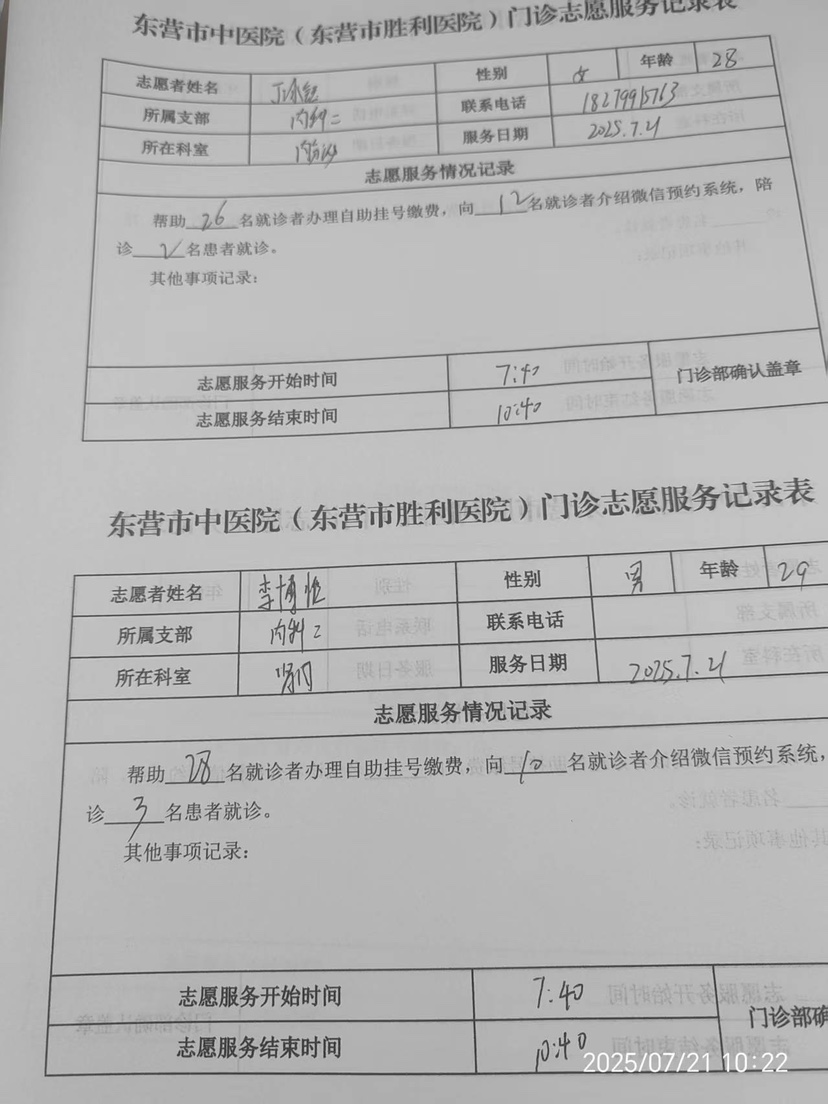 东营市中医院（东营市胜利医院）门诊志愿服务记录表
志愿者姓名 性别 女 年龄 28
所属支部 内科二 联系电话 18279915763
所在科室 服务日期 2025.7.21
志愿服务情况记录
帮助 26 名就诊者办理自助挂号缴费，向 12 名就诊者介绍微信预约系统，陪
诊 2 名患者就诊。
其他事项记录：
志愿服务开始时间 7:40 门诊部确认盖章
志愿服务结束时间 10:40
东营市中医院（东营市胜利医院）门诊志愿服务记录表
志愿者姓名 李博恒 性别 男 年龄 29
所属支部 内科二 联系电话
所在科室 肾内 服务日期 2025.7.21
志愿服务情况记录
帮助 28 名就诊者办理自助挂号缴费，向 10 名就诊者介绍微信预约系统，
诊 3 名患者就诊。
其他事项记录：
志愿服务开始时间 7:40 门诊部确
志愿服务结束时间 10:40
2025/07/21 10:22